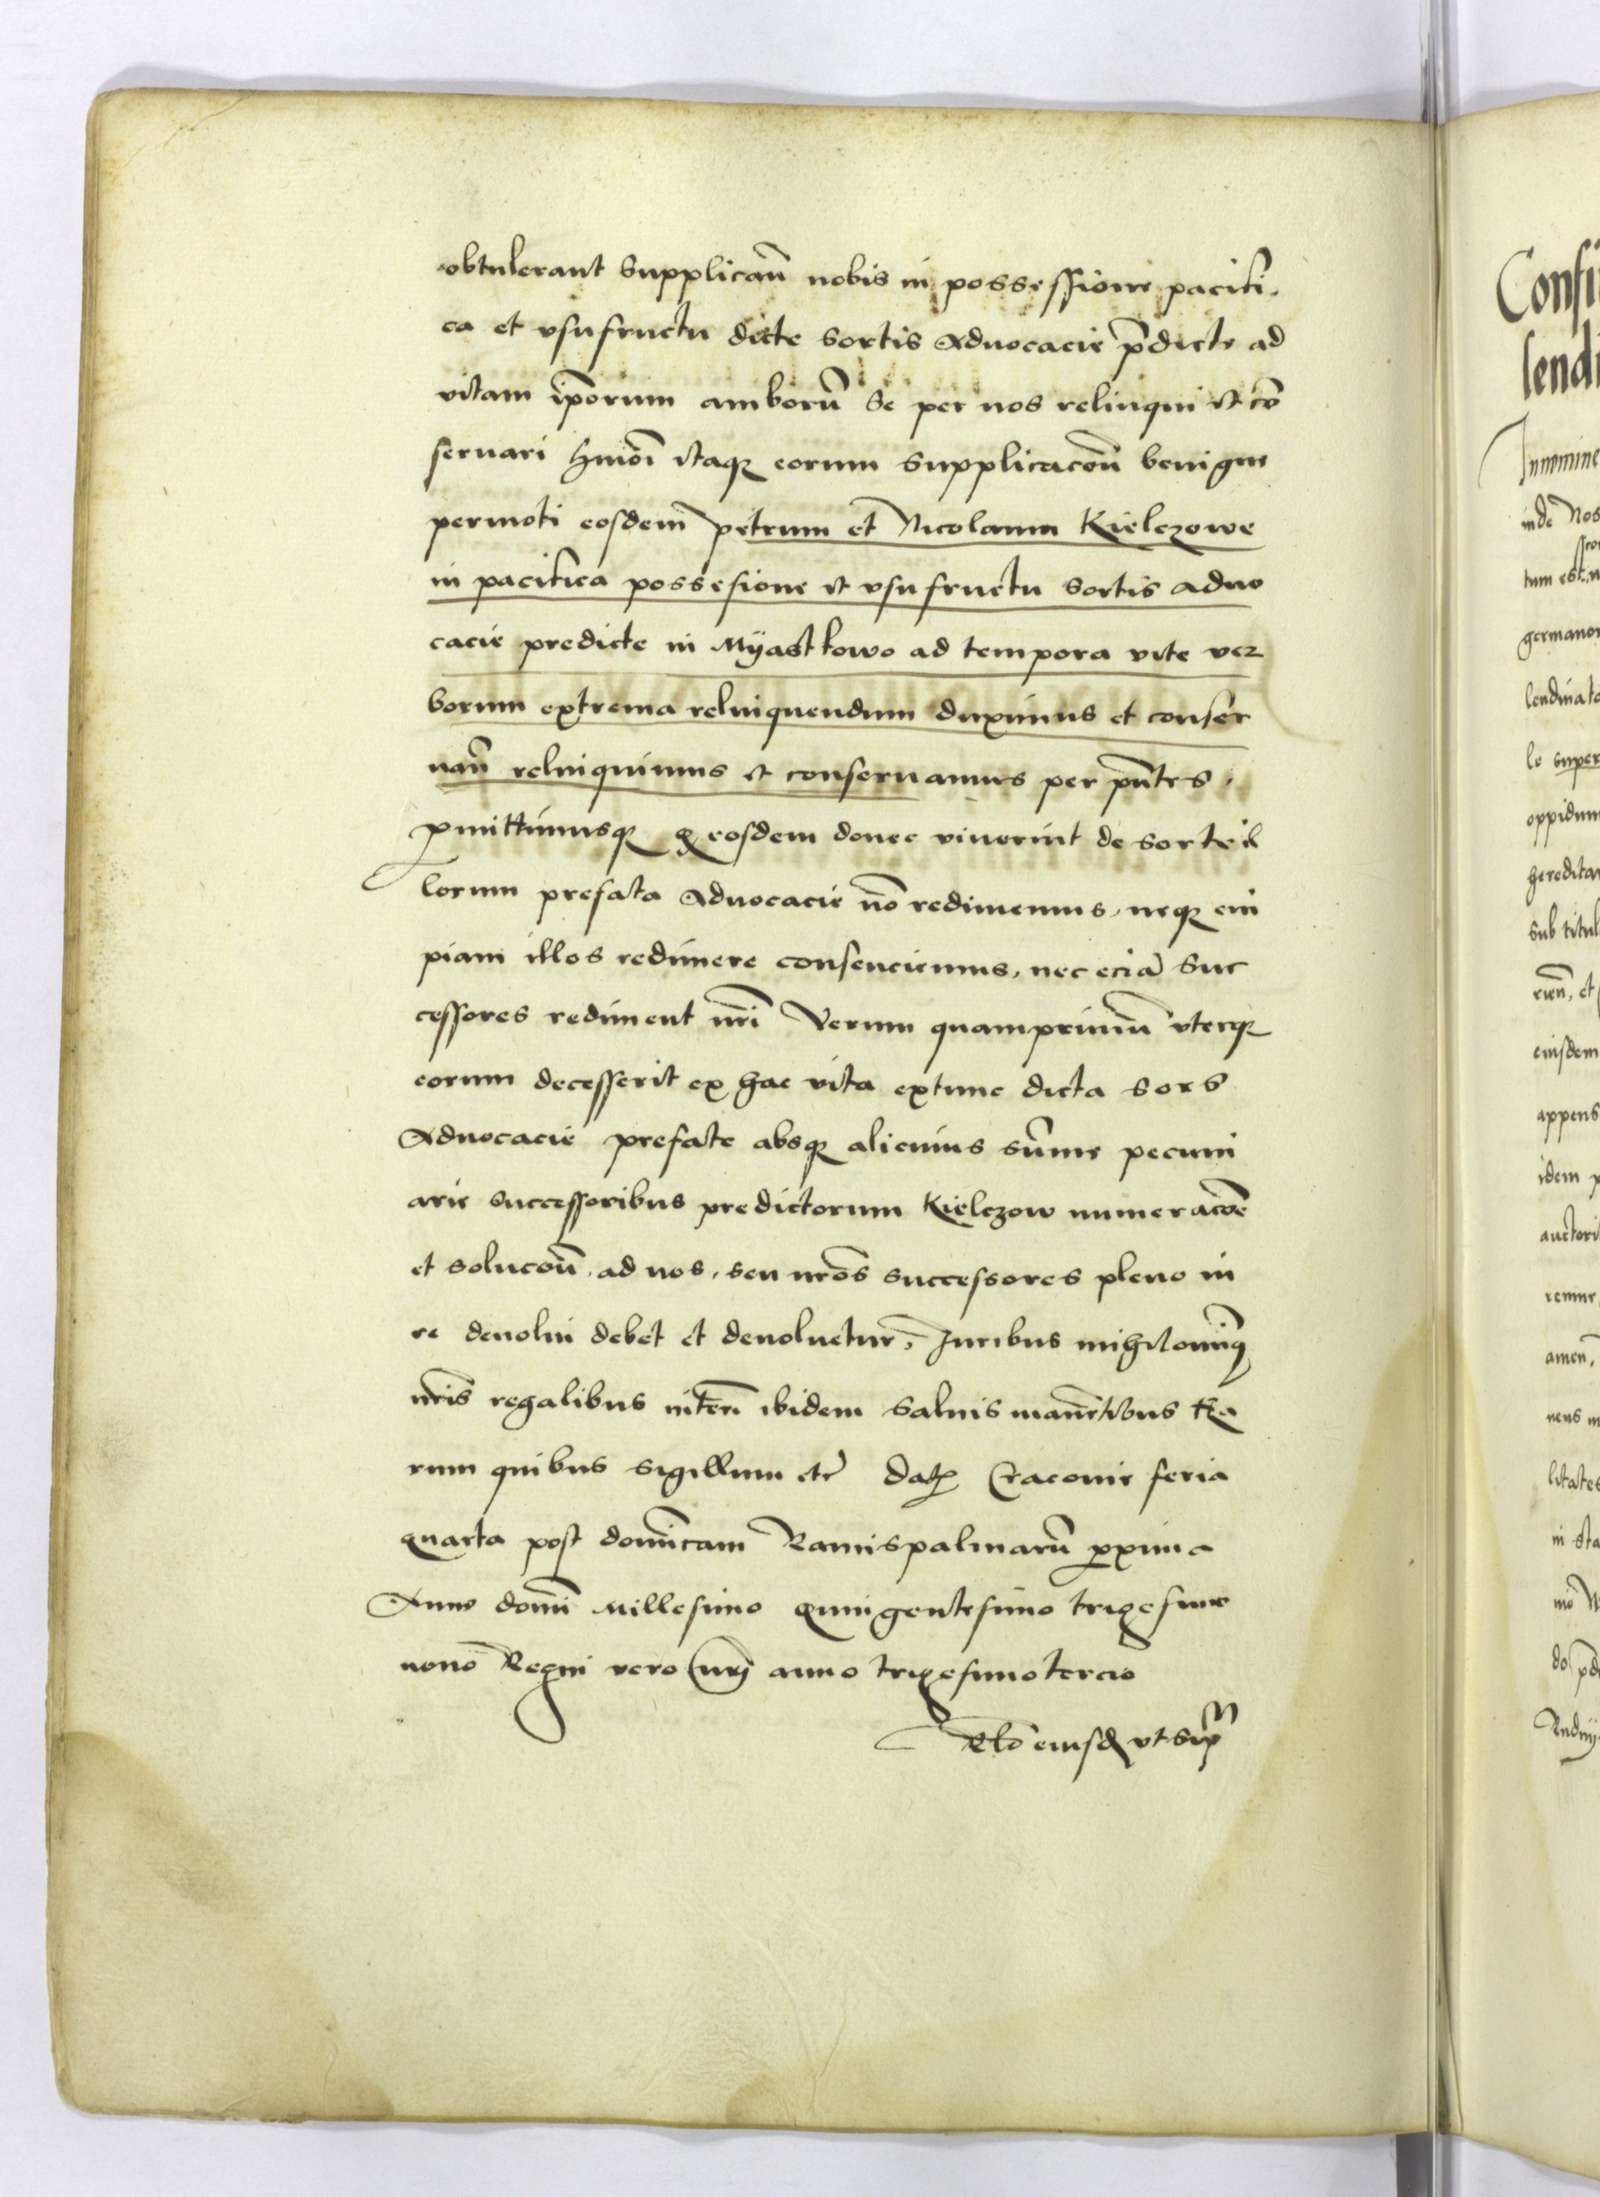 obtulerant supplicañ nobis in possessione pacifi.
ca et vsufructu dicte sortis Aduocacie p̃dicte ad
vitam ip̃orum amborũ se per nos relinqui et cõ
seruari hmõi itaqꝫ eorum supplicacoñ benigne
permoti eosdem petrum et Nicolaum Kielczowe
in pacifica possesione et vsufructu sortis aduo
cacie predicte in Myastkowo ad tempora vite
borum extrema relinquendum duximus et conser
uañ relinquimus et conseruamus per pñtes.
ꝓmittimusqꝫ ꝙ eosdem donec vixerint de sorte il
lorum prefata Aduocacie nõ redimemus, neqꝫ cui
piam illos redimere consenciemus, nec eciã suc
cessores rediment nr̃i Verum quamprimũ vterqꝫ
eorum decesserit ex hac vita extunc dicta sors
Aduocacie prefate absqꝫ alicuius sũme pecuni
arie successoribus predictorum Kielczow numeracõe
et solucoñ. ad nos. seu nr̃os successores pleno iu
re deuolui debet et deuoluetur, Juribus nihilominꝰ
nr̃is regalibus inter̃ ibidem saluis maneñtibus Ha
rum quibus sigillum etc̃ Datꝫ Cracouie feria
quarta post dominĩcam Ramispalmarũ ꝓxima
Anno domĩ Millesimo quingentesimo trigesimo
nono Regni vero nrj̃ anno trigesimotercio
Rlõ eiusdꝫ vt supra
Confi
lendi
Innomine
inde Nos
tum est
germanor
lendinato
le super
oppidum
hereditar
sub titul
rien, et
eiusdem
appens
idem p
auctori
remur
amen,
nens m
litates
in sta
mo W
do p̃d